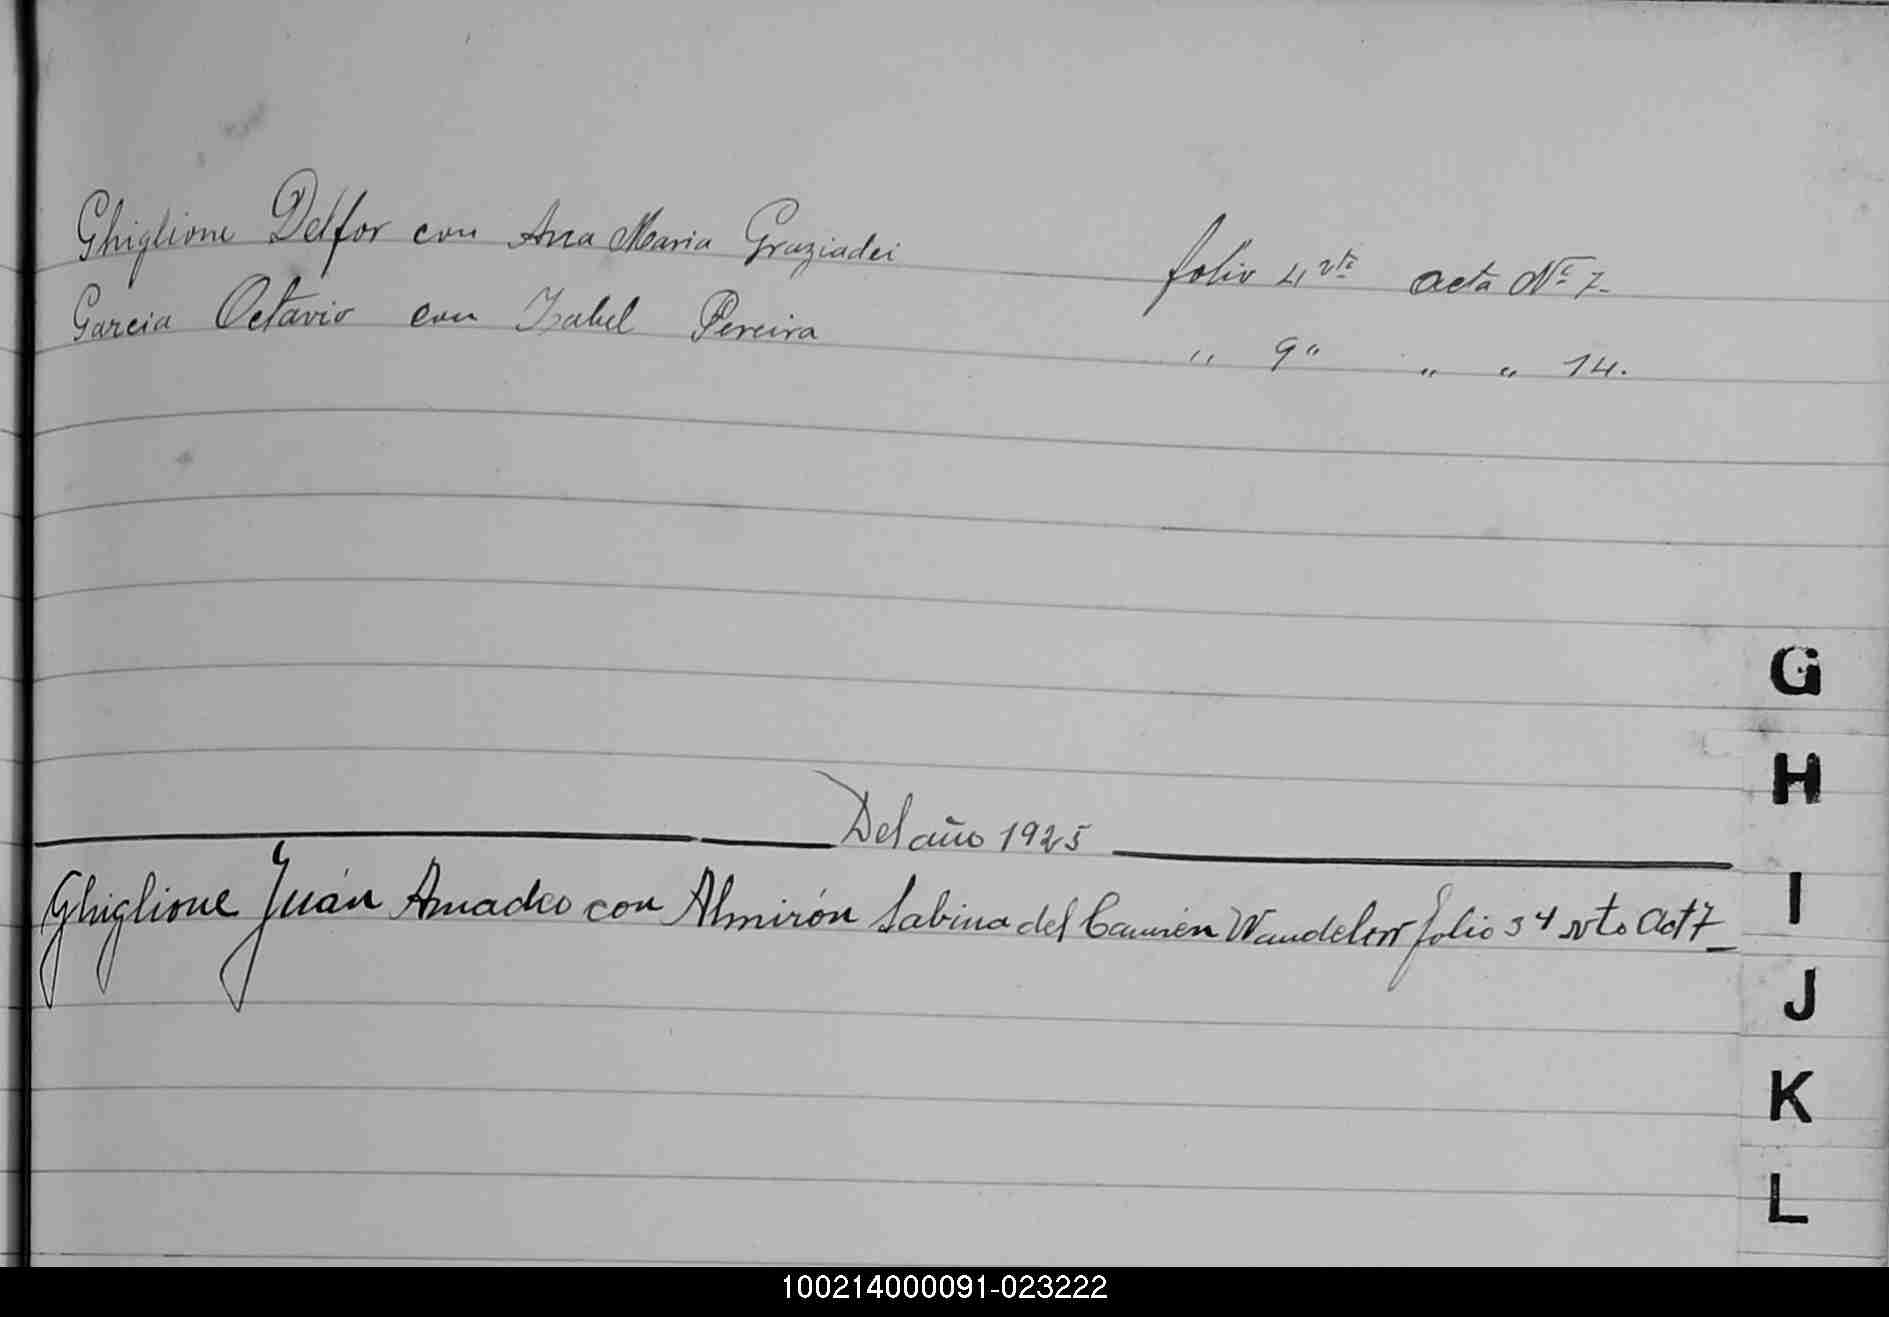 Ghiglione Delfor con Ana Maria Graziadei folio 4 vto acta Nº 7-
Garcia Octavio con Isabel Pereira " 9 " " " 14.
Del año 1925
Ghiglione Juán Amadeo con Almirón Sabina del Carmen folio 34 vto Act 7
G
H
I
J
K
L
100214000091-023222